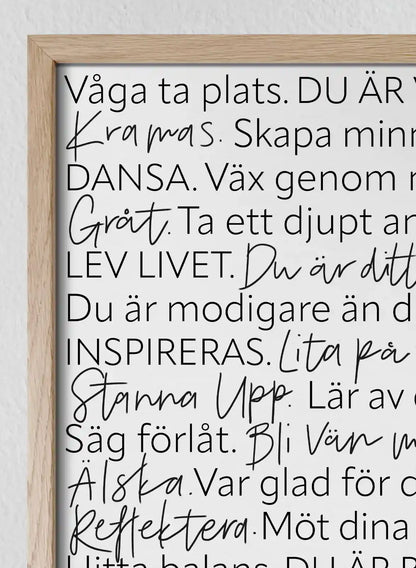 Våga ta plats. DU ÄR
Kramas. Skapa minn
DANSA. Väx genom
Gråt. Ta ett djupt an
LEV LIVET. Du är ditt
Du är modigare än d
INSPIRERAS. Lita på
Stanna Upp. Lär av
Säg förlåt. Bli Vän m
Älska. Var glad för d
Reflektera. Möt dina
Hitta balans. DU ÄR